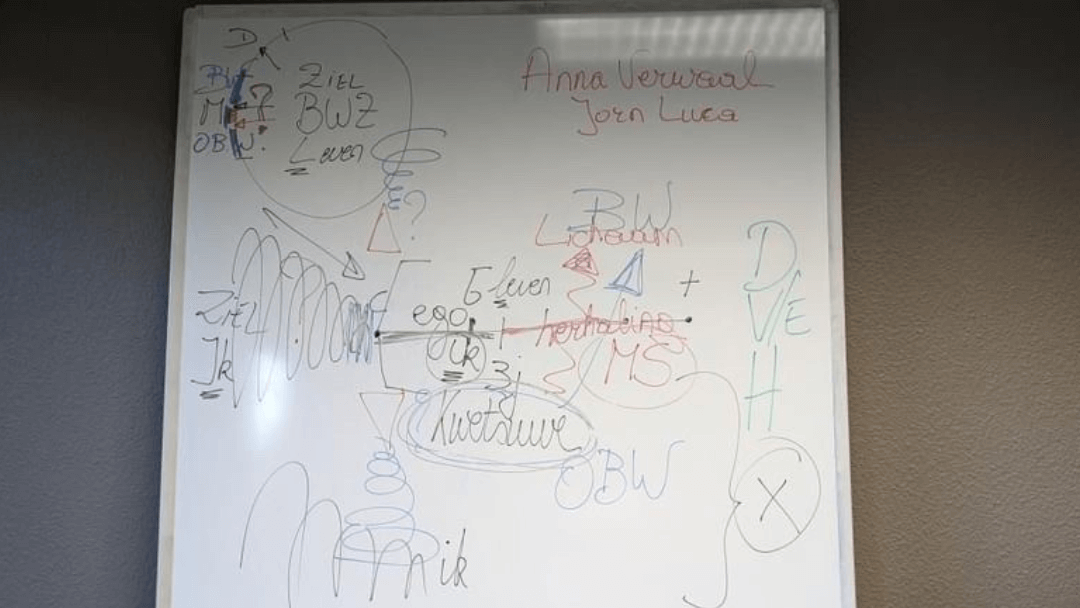 D
Anna Verwaal
Jorn Luca
BW
ZIEL
M ?
BWZ
OBW.
Leven
?
BW
Lichaam
D
leven
+
ZIEL
ego
herhaling
VE
Ik
ik
3j
MS
H
Kwetsuur
OBW
X
ik